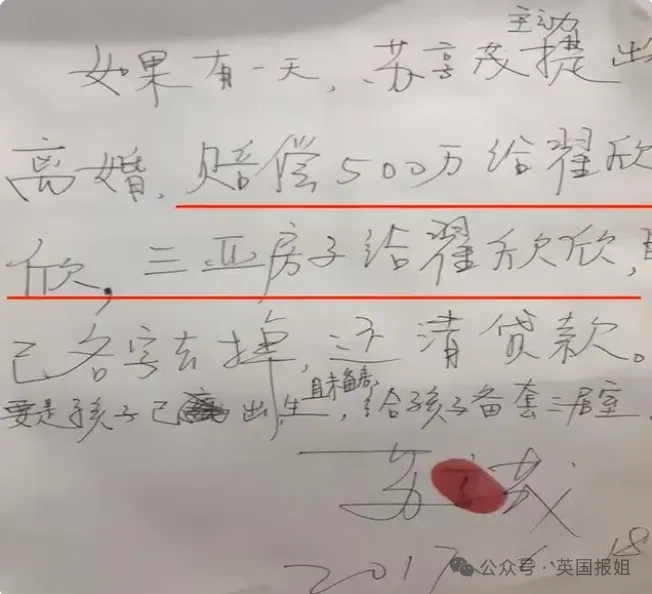 主动
如果有一天，苏享茂提出
离婚，赔偿500万给翟欣
欣，三亚房子给翟欣欣，
己名字去掉，还清贷款。
且未备春，
要是孩子已出生，给孩子备套三居室
苏享茂
2017 6 18
公众号·英国报姐